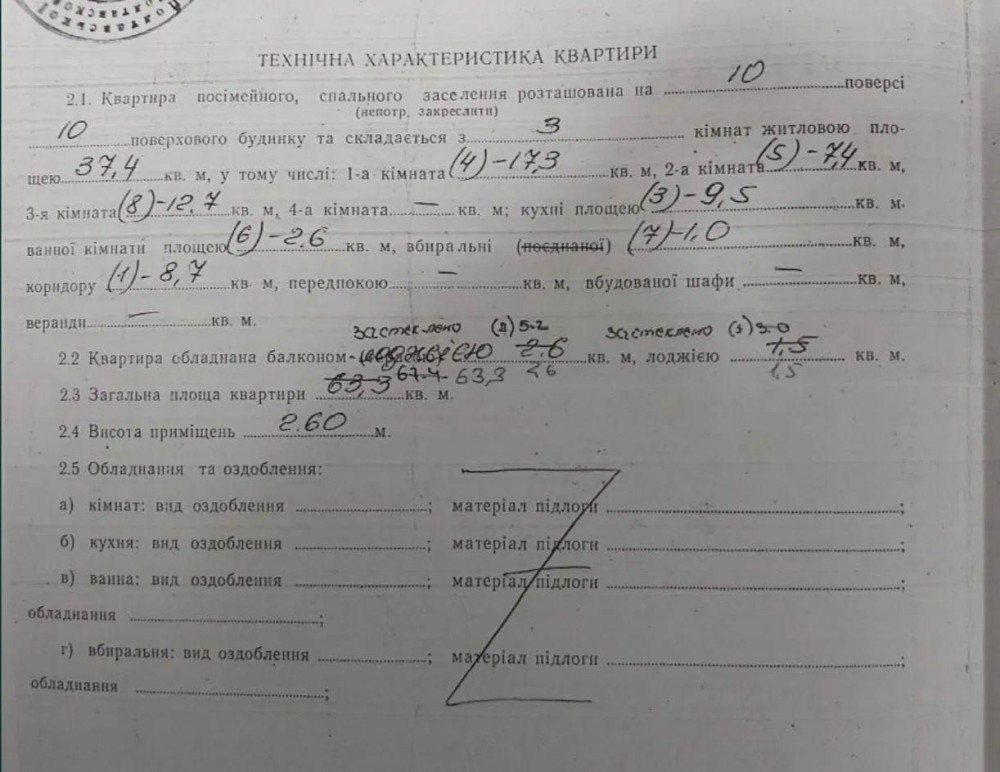 ТЕХНІЧНА ХАРАКТЕРИСТИКА КВАРТИРИ
2.1. Квартира посімейного, спального заселення розташована на 10 поверсі
(непотр, закреслити)
10 поверхового будинку та складається з 3 кімнат житловою пло-
щею 37,4 кв. м, у тому числі: 1-а кімната (4)-17,3 кв. м, 2-а кімната (5)-7,4 кв. м,
3-я кімната (8)-12,7 кв. м, 4-а кімната — кв. м; кухні площею (3)-9,5 кв. м.
ванної кімнати площею (6)-2.6 кв. м, вбиральні (поєднаної) (7)-1,0 кв. м,
коридору (1)-8,7 кв. м, передпокою — кв. м, вбудованої шафи — кв. м,
веранди — кв. м.
застеклено 5.2 застеклено 3.0
2.2 Квартира обладнана балконом- лоджією 2.6 кв. м, лоджією 1,5 кв. м.
63,3 67.4 63,3 26 1,5
2.3 Загальна площа квартири кв. м.
2.4 Висота приміщень 2.60 м.
2.5 Обладнання та оздоблення:
а) кімнат: вид оздоблення ; матеріал підлоги ;
б) кухня: вид оздоблення ; матеріал підлоги ;
в) ванна: вид оздоблення ; матеріал підлоги ;
обладнання ;
г) вбиральня: вид оздоблення ; матеріал підлоги ;
обладнання ;